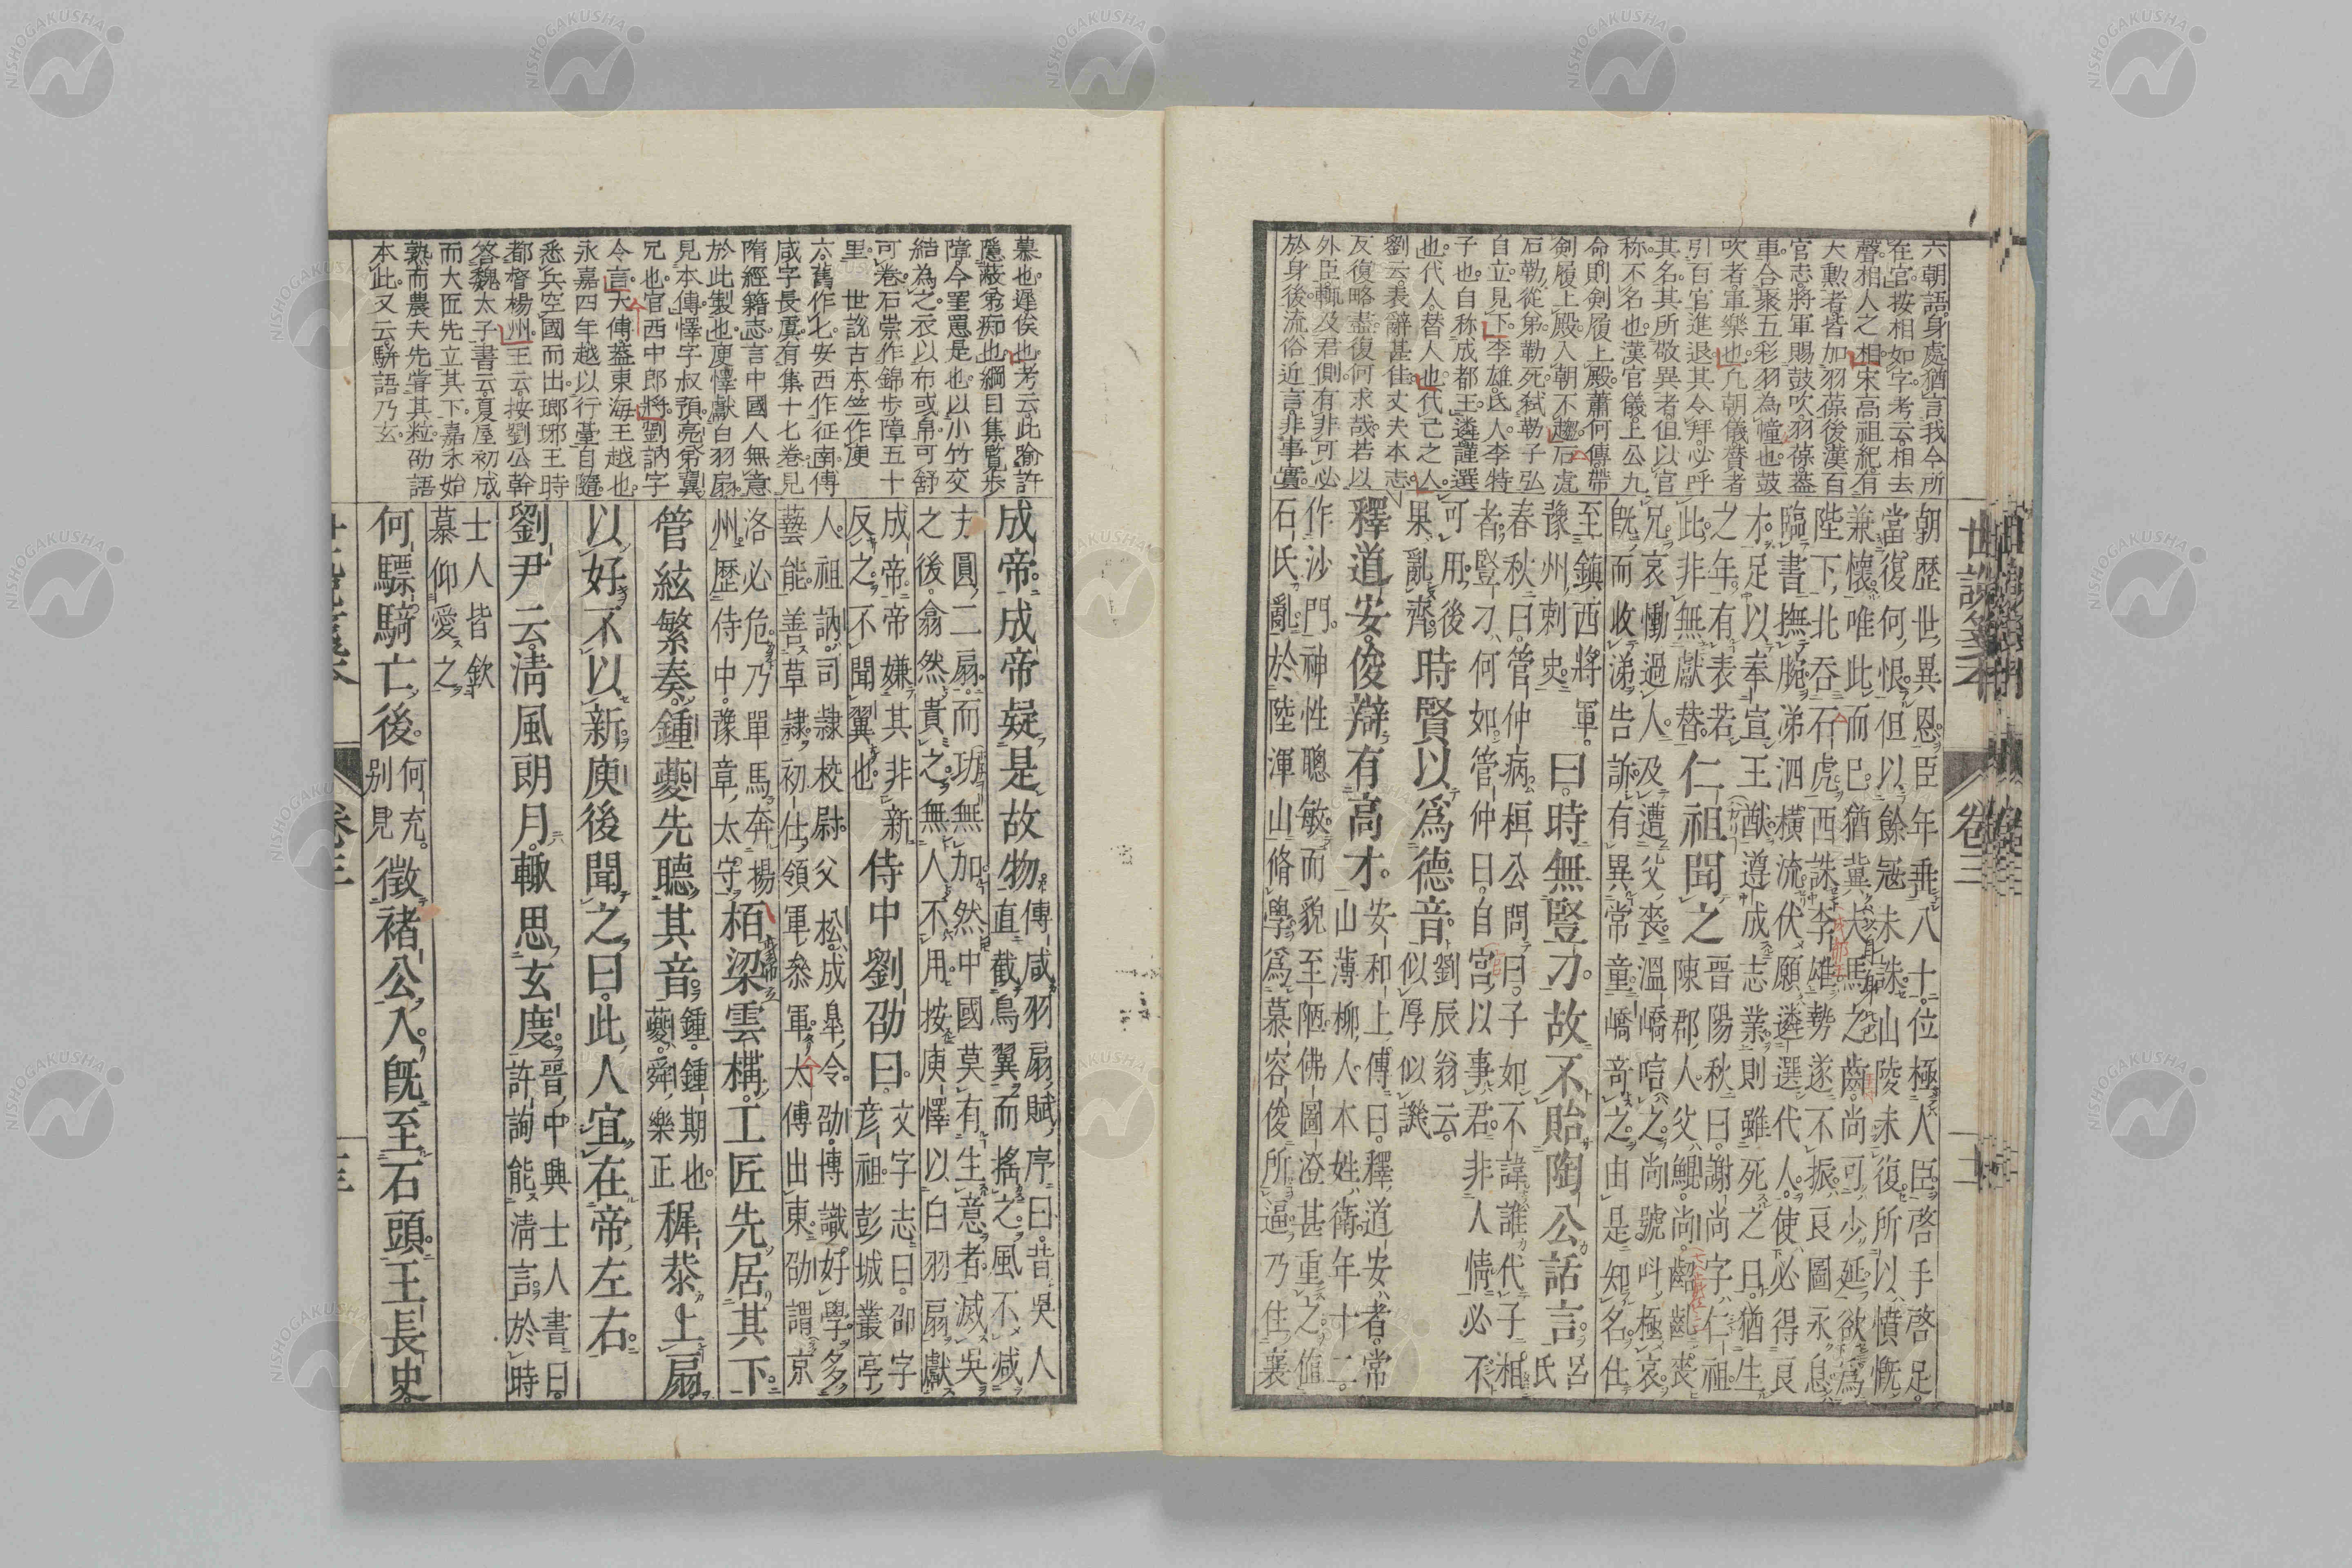 六朝語身處猶言我今所
在官按相如字考云相去
聲相人之相宋高祖紀有
大勲者皆加羽葆後漢百
官志將軍賜鼓吹羽葆葢
車合聚五彩羽為幢也鼓
吹者軍樂也凡朝儀賛者
引百官進退其令拜必呼
其名其所敬異者但以官
称不名也漢官儀上公九
命則剣履上殿蕭何傳帶
剣履上殿入朝不趨石虎
石勒從弟勒死弑勒子弘
自立見下李雄氐人李特
子也自称成都王遴謹選
也代人替人也代己之人
劉云表辭甚佳丈夫本志
反復略盡復何求哉若以
外臣輒及君側有非可必
於身後流俗近言非事實
卷三
朝歴世異恩臣年垂八十位極人臣啓手啓足
當復何恨但以餘冦未誅山陵未復所以憤慨
兼懷唯此而已猶冀犬馬之齒尚可少延欲爲
陛下北吞石虎西誅李雄勢遂不振良圖永息
臨書撫腕涕泗横流伏願遴選代人使必得良
才足以奉宣王猷遵成志業則雖死之日猶生
之年有表若此非無獻替仁祖聞之晉陽秋曰謝尚字仁祖陳郡人父鯤尚齠齔喪
兄哀慟過人及遭父喪温嶠唁之尚號叫極哀
既而收涕告訴有異常童嶠奇之由是知名仕
至鎮西將軍豫州刺史曰時無豎刁故不貽陶公話言呂氏
春秋曰管仲病桓公問曰子如不諱誰代子相
者豎刁何如管仲曰自宮以事君非人情必不
可用後果亂齊時賢以爲德音劉辰翁云似厚似譏
釋道安俊辯有高才安和上傳曰釋道安者常山薄柳人木姓衛年十二
作沙門神性聰敏而貌至陋佛圖澄甚重之值
石氏亂於陸渾山脩學爲慕容俊所逼乃住襄
慕也遲俟也考云此喩許
隱蔽弟痴也綱目集覧歩
障今罣罳是也以小竹交
結為之衣以布或帛可舒
可卷石崇作錦歩障五十
里 世説古本竺作庾
六舊作七安西作征南傅
咸字長虞有集十七卷見
隋經籍志言中國人無意
於此製也庾懌獻白羽扇
見本傳懌字叔預亮弟翼
兄也官西中郎將劉訥字
令言大傅葢東海王越也
永嘉四年越以行臺自隨
悉兵空國而出瑯琊王時
都督楊州王云按劉公幹
答魏太子書云夏屋初成
而大匠先立其下嘉禾始
熟而農夫先嘗其粒劭語
本此又云駢語乃玄
成帝成帝疑是故物傅咸羽扇賦序曰昔吳人直截鳥翼而搖之風不減
方圓二扇而功無加然中國莫有生意者滅吳
之後翕然貴之無人不用按庾懌以白羽扇獻
成帝帝嫌其非新反之不聞翼也侍中劉劭曰文字志曰卲字彦祖彭城叢亭
人祖訥司隷校尉父松成臯令劭博識好學多
藝能善草隷初仕領軍叅軍太傅出東劭謂京
洛必危乃單馬奔揚州歴侍中豫章太守栢梁雲構工匠先居其下
管絃繁奏鍾夔先聽其音鍾鍾期也夔舜樂正穉恭上扇
以好不以新庾後聞之曰此人宜在帝左右
劉尹云清風朗月輒思玄度晉中興士人書曰許詢能清言於時
士人皆欽慕仰愛之
何驃騎亡後何充別見徵褚公入既至石頭王長史
NISHOGAKUSHA